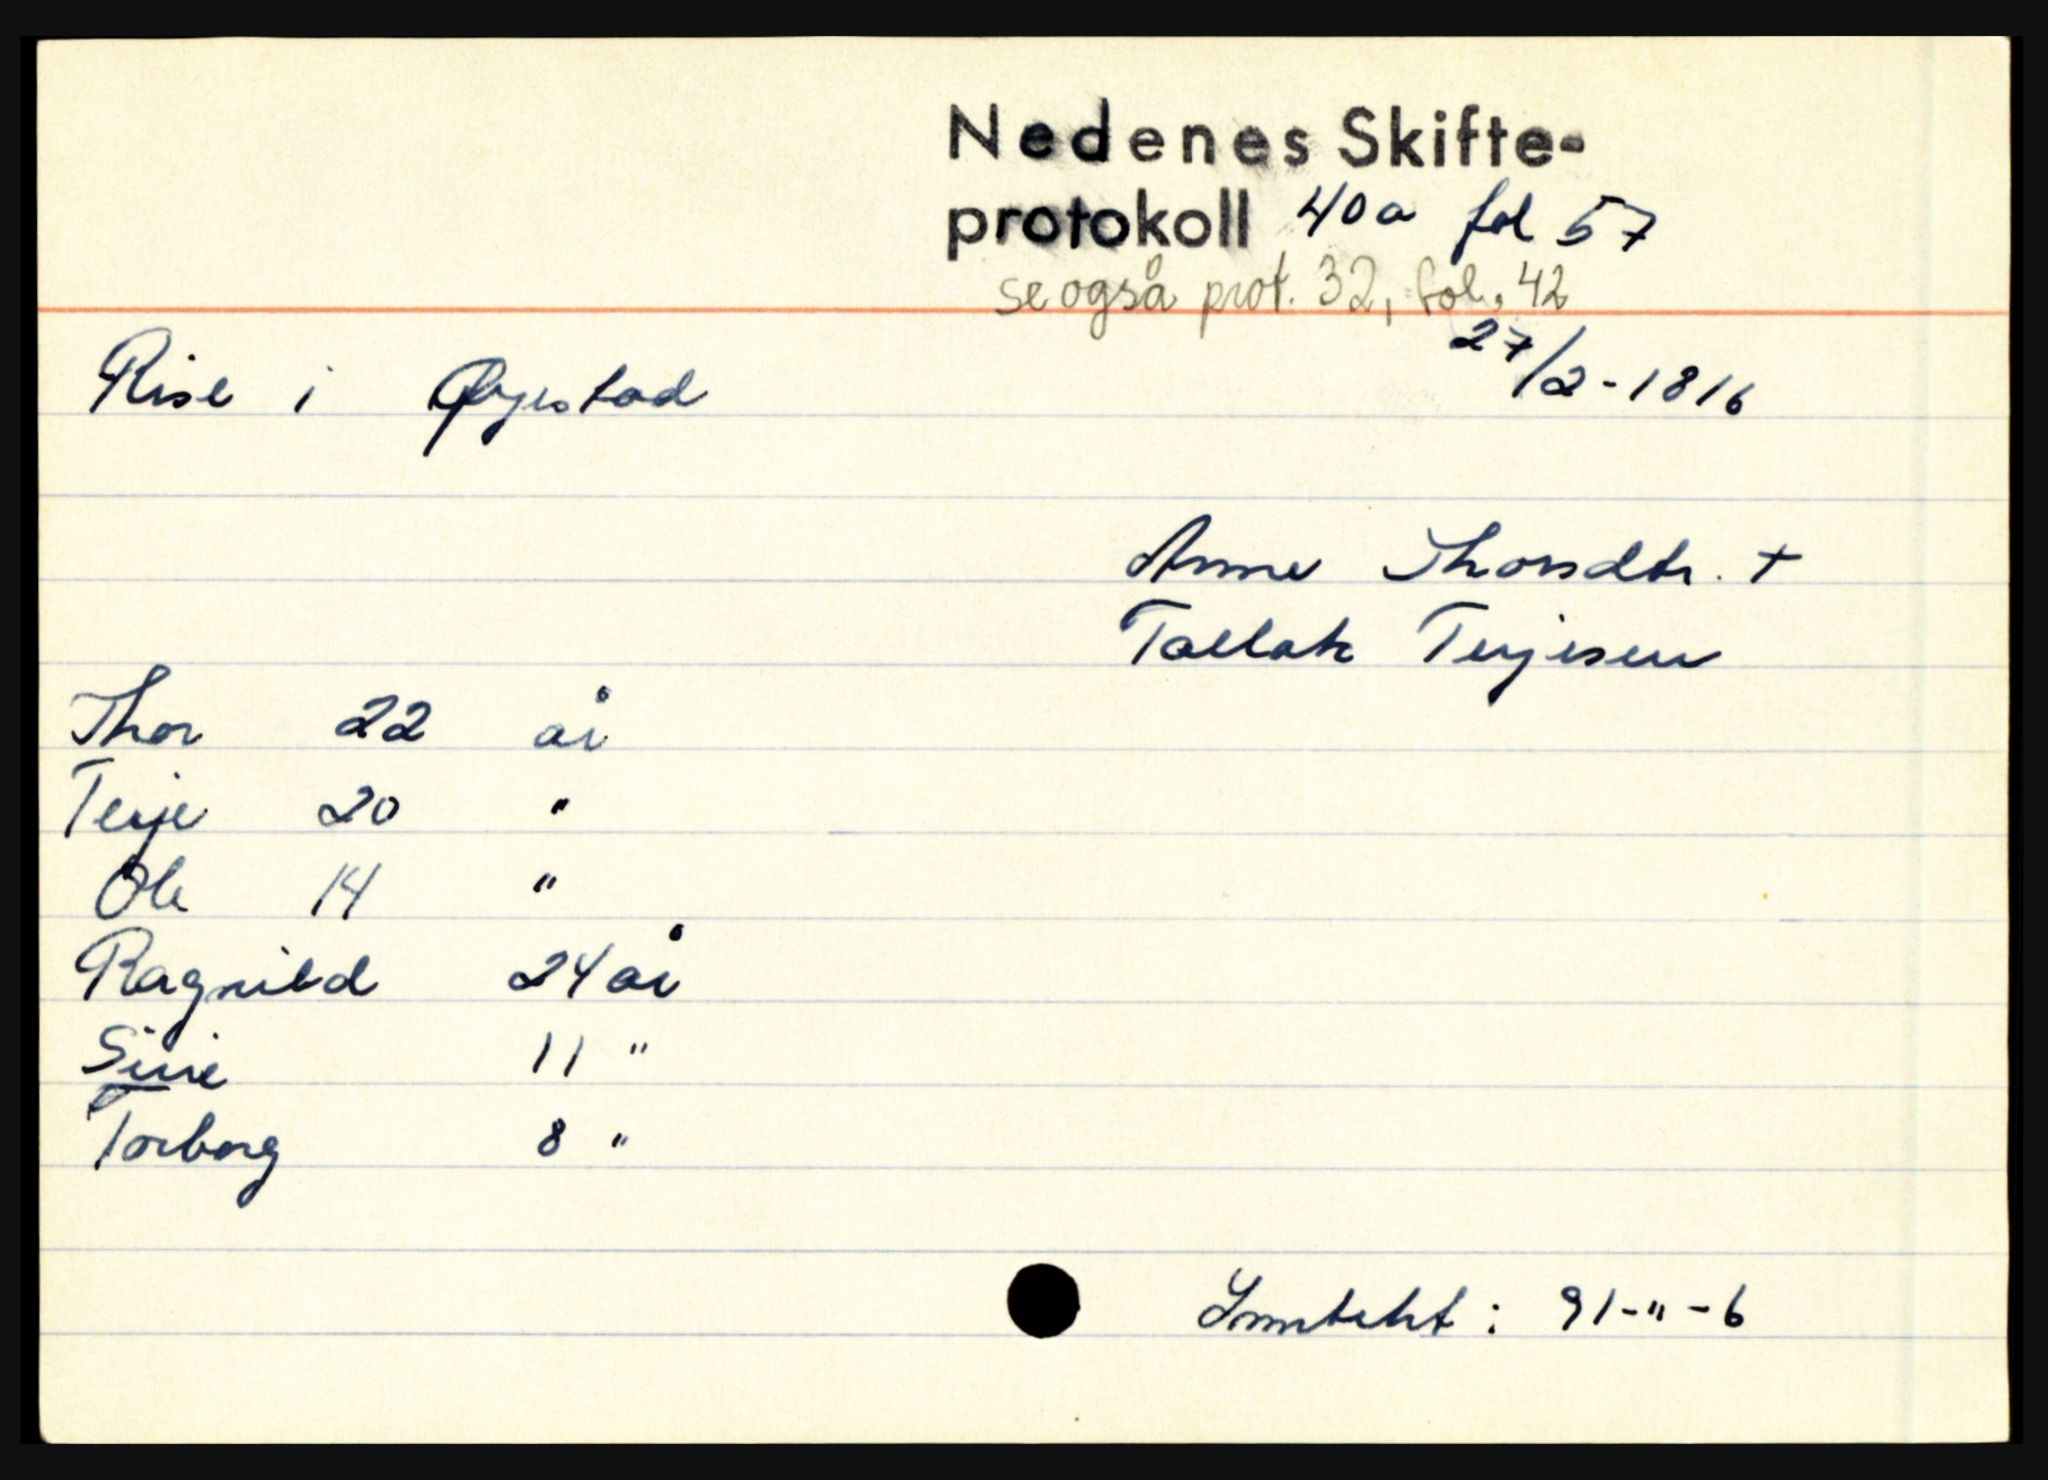 Nedenes Skifte-
protokoll 40a fol 57
se også prot. 32, fol. 42
27/2-1816
Rise i Øyestad
Anne Thorsdtr. +
Tallak Terjesen
Thor 22 år
Terje 20 "
Ole 14 "
Ragnild 24 år
Sirie 11 "
Torborg 8 "
Inntekt : 91-"-6